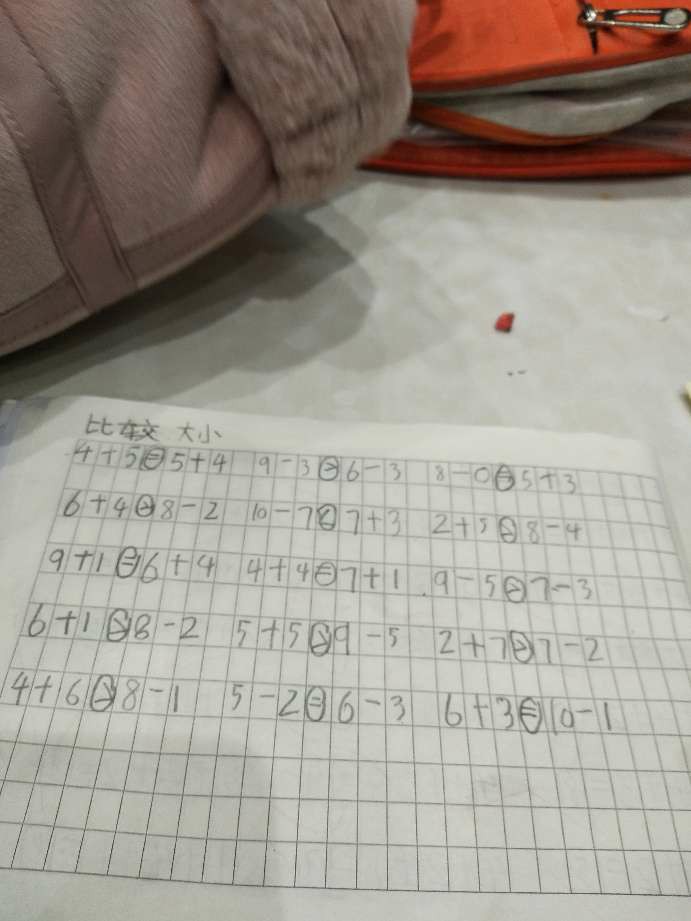 比较 大小
4+5=5+4 9-3>6-3 8-0=5+3
6+4>8-2 10-7<7+3 2+5>8-4
9+1=6+4 4+4=7+1 9-5>7-3
6+1>8-2 5+5>9-5 2+7>7-2
4+6>8-1 5-2=6-3 6+3=10-1